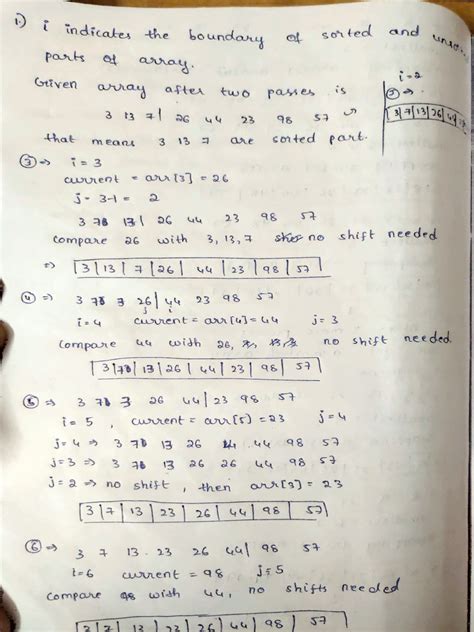 1.) i indicates the boundary of sorted and
parts of array.
Given array after two passes is
3 13 7 | 26 44 23 98 57
that means 3 13 7 are sorted part.
i=2
② ⇒
3 | 7 | 13 | 26 | 44
③ ⇒ i = 3
current = arr[3] = 26
j = 3-1 = 2
3 7 13 | 26 44 23 98 57
compare 26 with 3, 13, 7 no shift needed
⇒ | 3 | 13 | 7 | 26 | 44 | 23 | 98 | 57 |
④ ⇒ 3 26 | 44 23 98 57
j i
i=4 current = arr[4] = 44 j = 3
compare 44 with 26, no shift needed
3 | 13 | 26 | 44 | 23 | 98 | 57
⑤ ⇒ 3 26 44 | 23 98 57
i = 5 , current = arr[5] = 23 j = 4
j=4 ⇒ 3 13 26 44 44 98 57
j=3 ⇒ 3 13 26 26 44 98 57
j = 2 ⇒ no shift , then arr[3] = 23
| 3 | 7 | 13 | 23 | 26 | 44 | 98 | 57
⑥ ⇒ 3 7 13 23 26 44 | 98 57
i=6 current = 98 j=5
compare 98 with 44, no shifts needed
3 | 7 | 13 | 23 | 26 | 44 | 98 | 57